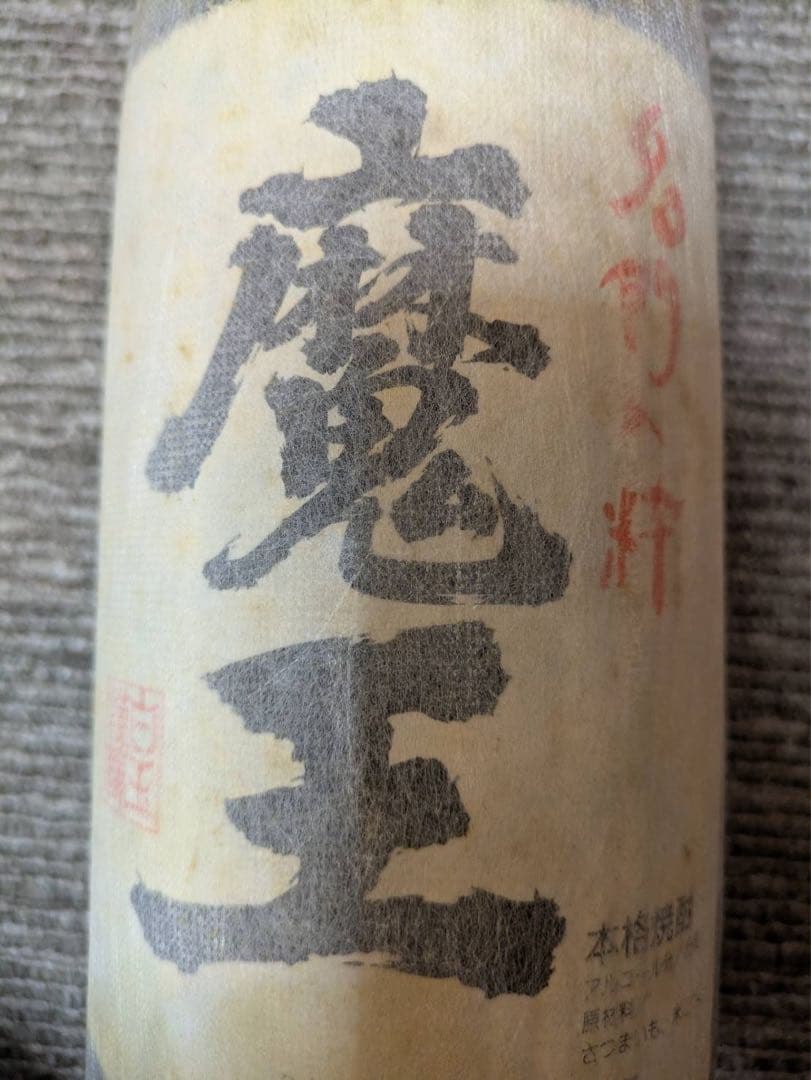 名門の粋
魔王
本格焼酎
アルコール分
原材料
さつまいも、米こうじ